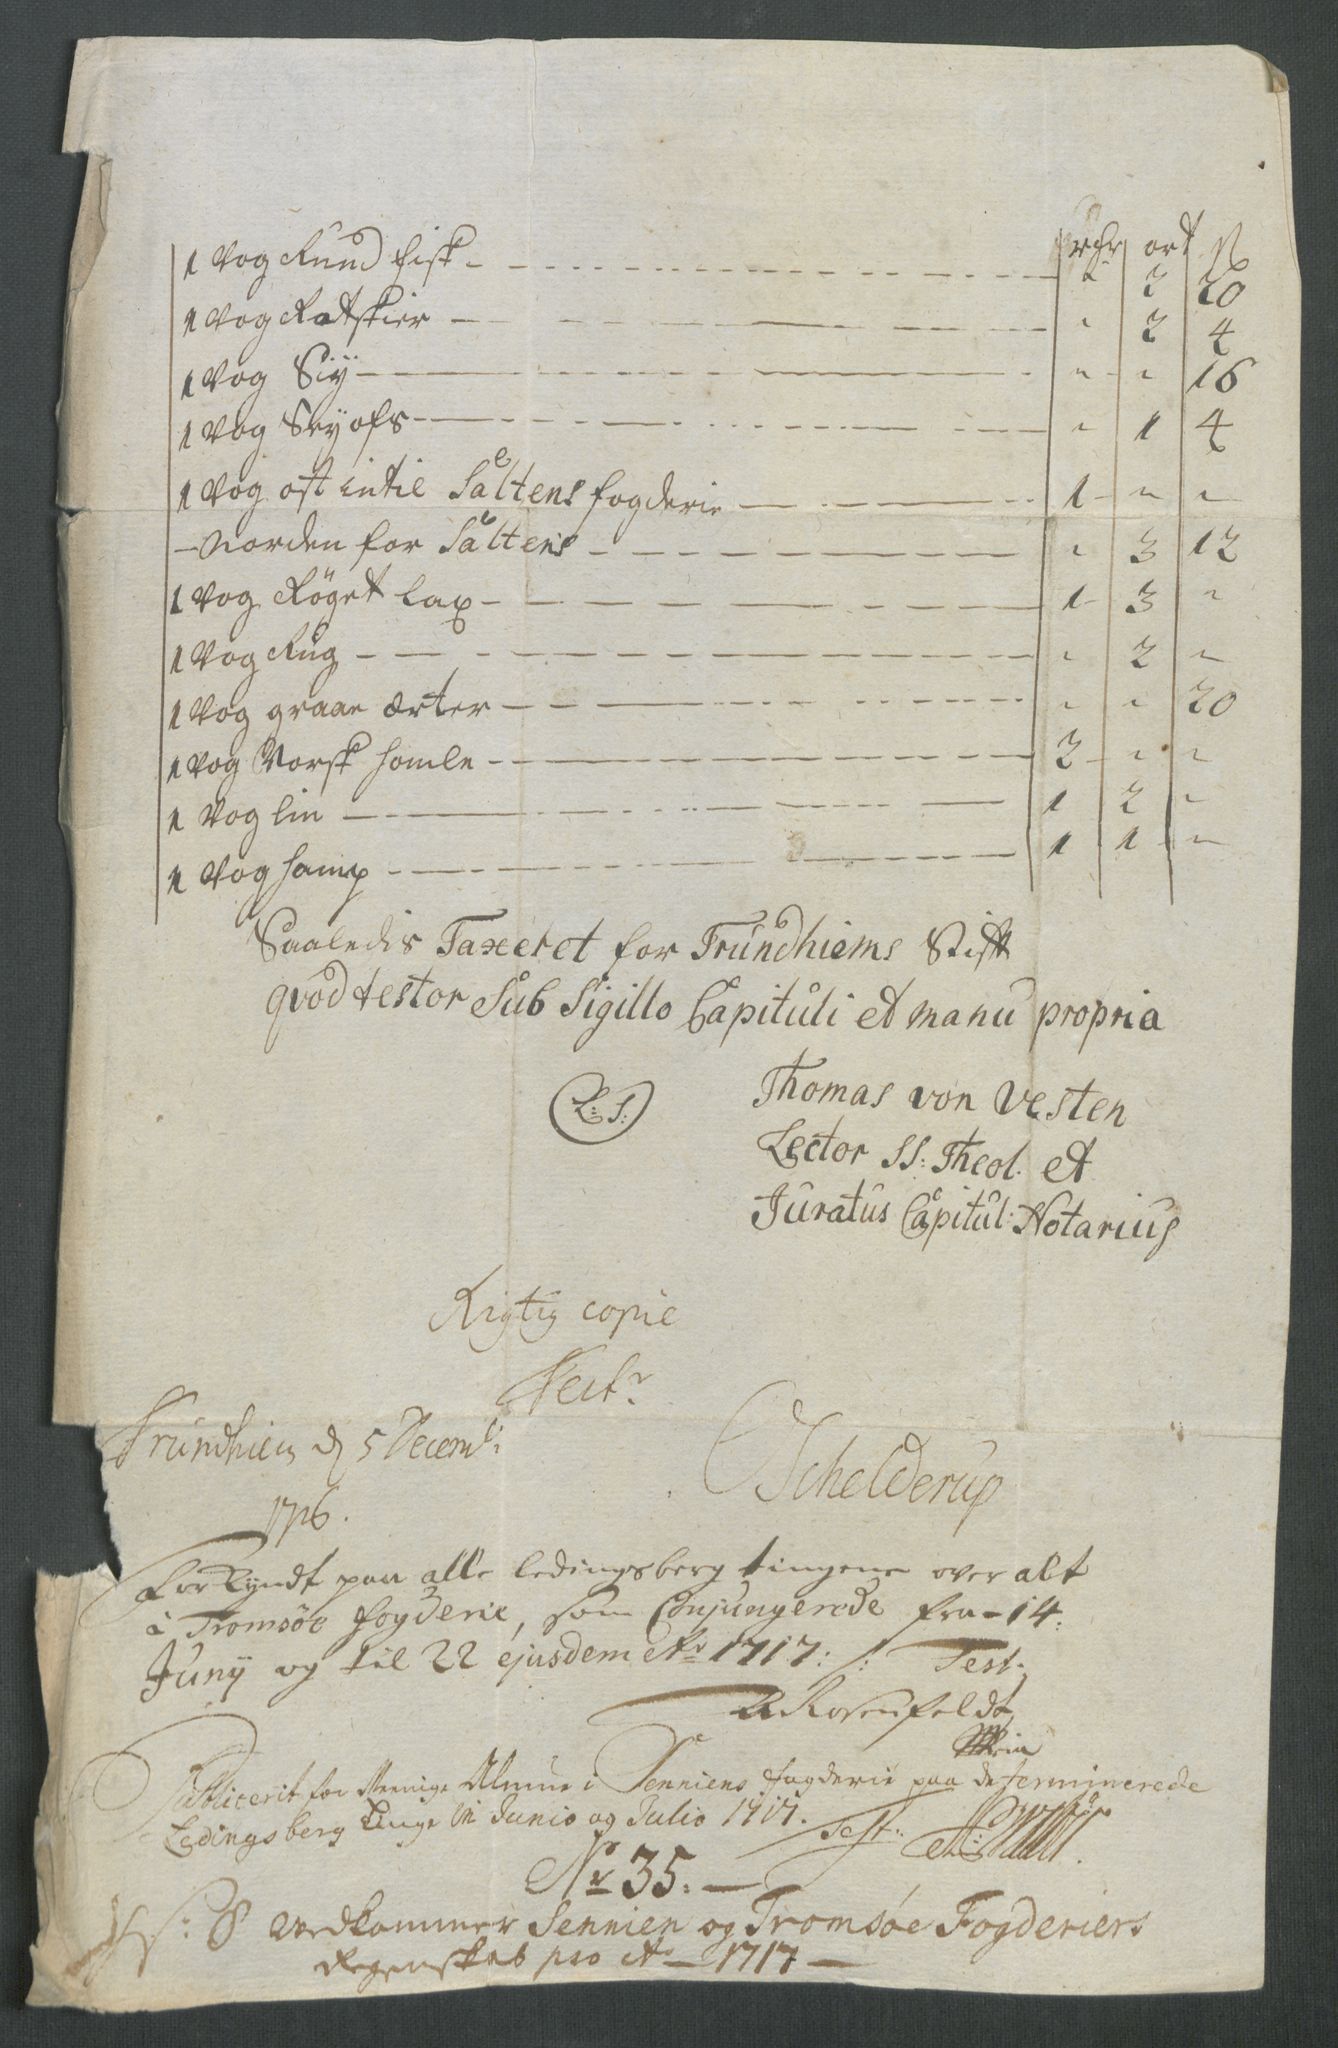 rdr ort ß
1 Vog Rund fisk - " 2 20
1 Vog Rotskier - " 2 4
1 Vog Siÿ - " " 16
1 Vog Seÿ ofs - " 1 4
1 Vog ost intil Saltens fogderie - 1 " "
- Norden for Saltens - " 3 12
1 Vog Röget lax - 1 3 "
1 Vog Rug - " 2 "
1 Vog graae ærter - " " 20
1 Vog Norsk homle - 2 " "
1 Vog lin - 1 2 "
1 Vog hamp - 1 1 "
Saaledis Taxeret for Trundhiems Stift
qvod testor Sub Sigillo Capituli et manu propria
L: S: Thomas von Vesten
Lector SS: Theol. et
Juratus Capitul: Notarius
Rigtig copie
Test:
Trundhiem d 5 Decemb:
1716. Schelderup
Forkyndt paa alle ledingsberg tingene over alt
i Tromsøe fogderie, som Conjungerede fra 14:
Juny og til 22 ejusdem Ao 1717: Test:
Rosenfeldt
Publicerit for Menige Almue i Senniens fogderie paa de terminerede
Ledingsberg Tinge in Junio og Julio 1717. Test:
No 35.
No: 8 vedkommer Sennien og Tromsøe Fogderiers
Regenskab pro Ao 1717